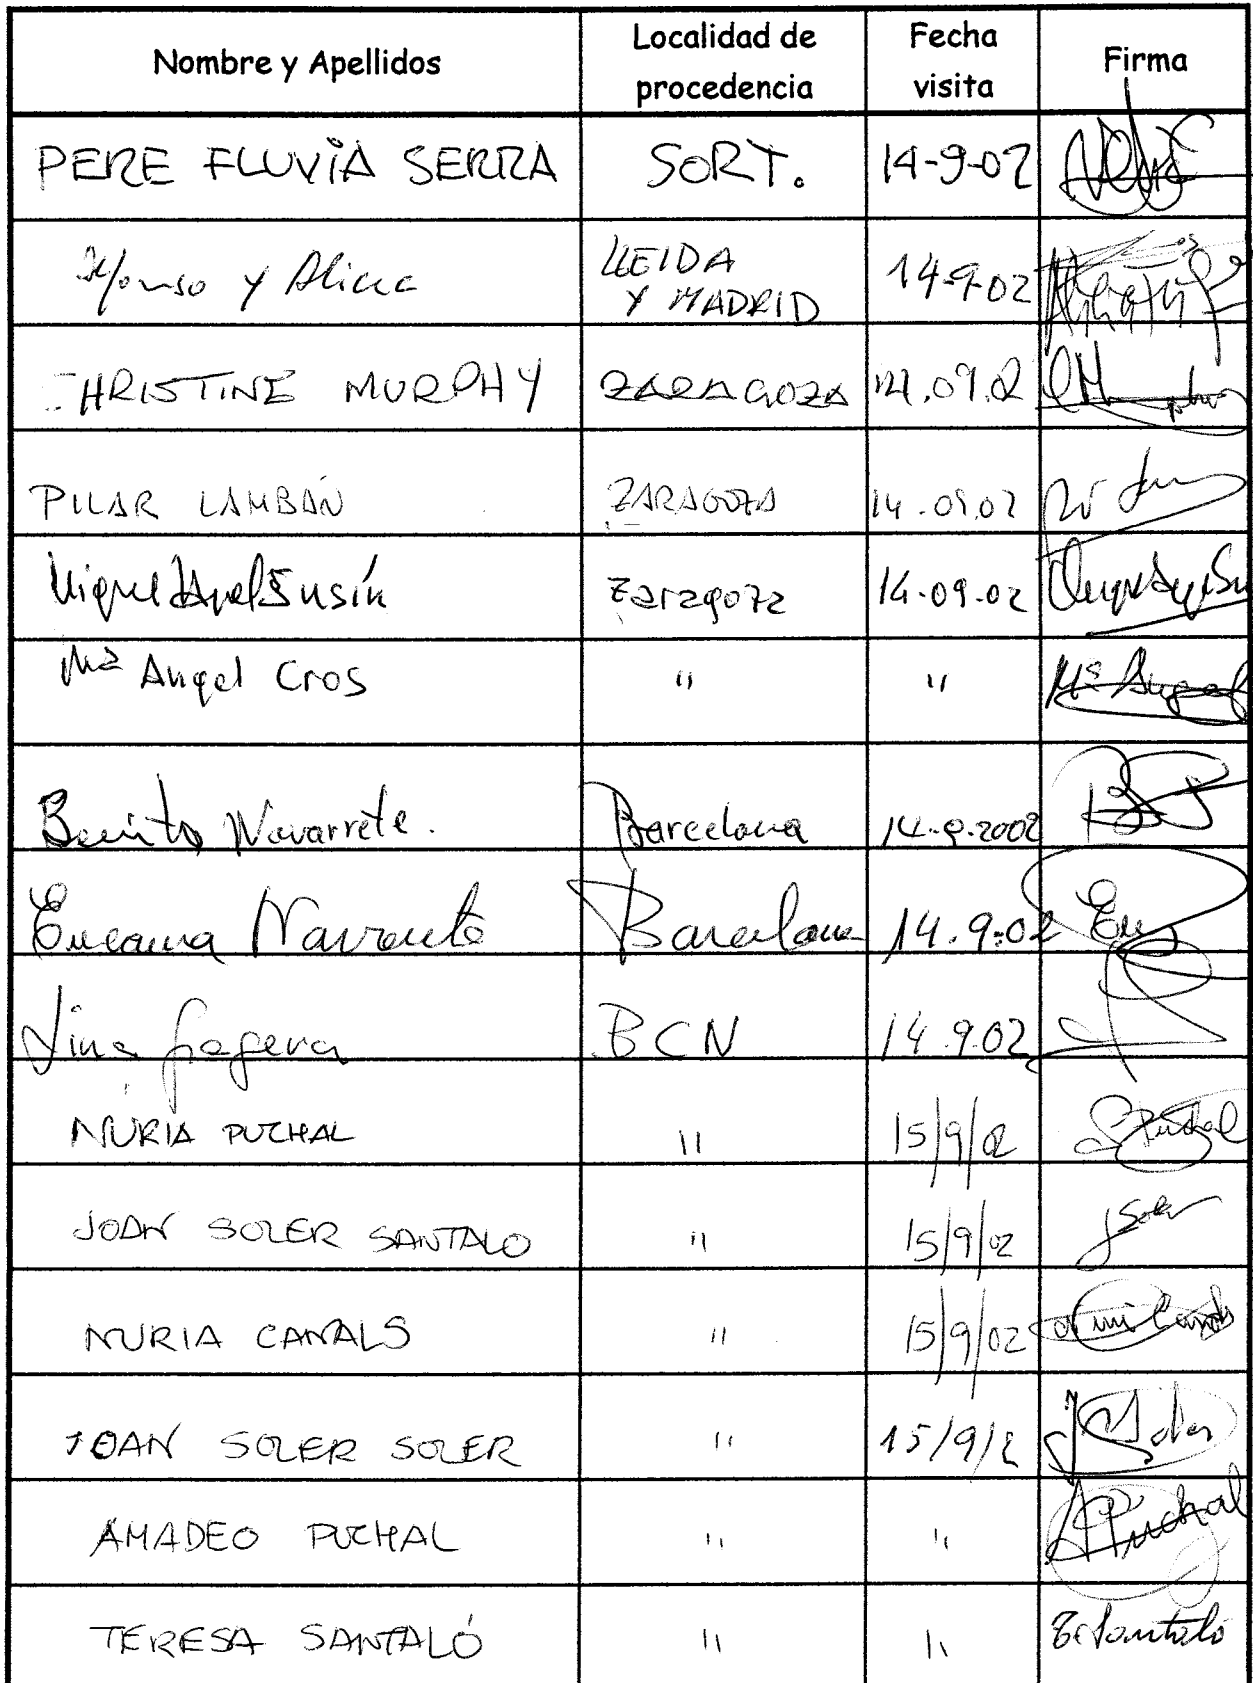 Nombre y Apellidos Localidad de procedencia Fecha visita Firma
PERE FLUVIÀ SERRA SORT. 14-9-02
Alfonso y Alicia LLEIDA Y MADRID 14-9-02
CHRISTINE MURPHY ZARAGOZA 14.09.02 CMurphy
PILAR LAMBÁN ZARAGOZA 14.09.02
Miguel Angel Susín Zaragoza 14-09-02
Mª Angel Cros " " Mª Angel
Benito Navarrete. Barcelona 14-9-2002
Encarna Navarrete Barcelona 14.9.02 En
Lina BCN 14.9.02
NURIA PUCHAL " 15/9/02 Puchal
JOAN SOLER SANTALO " 15/9/02 J Soler
NURIA CANALS " 15/9/02 Canals
JOAN SOLER SOLER " 15/9/2 J Soler
AMADEO PUCHAL " " A Puchal
TERESA SANTALÓ " " Santaló